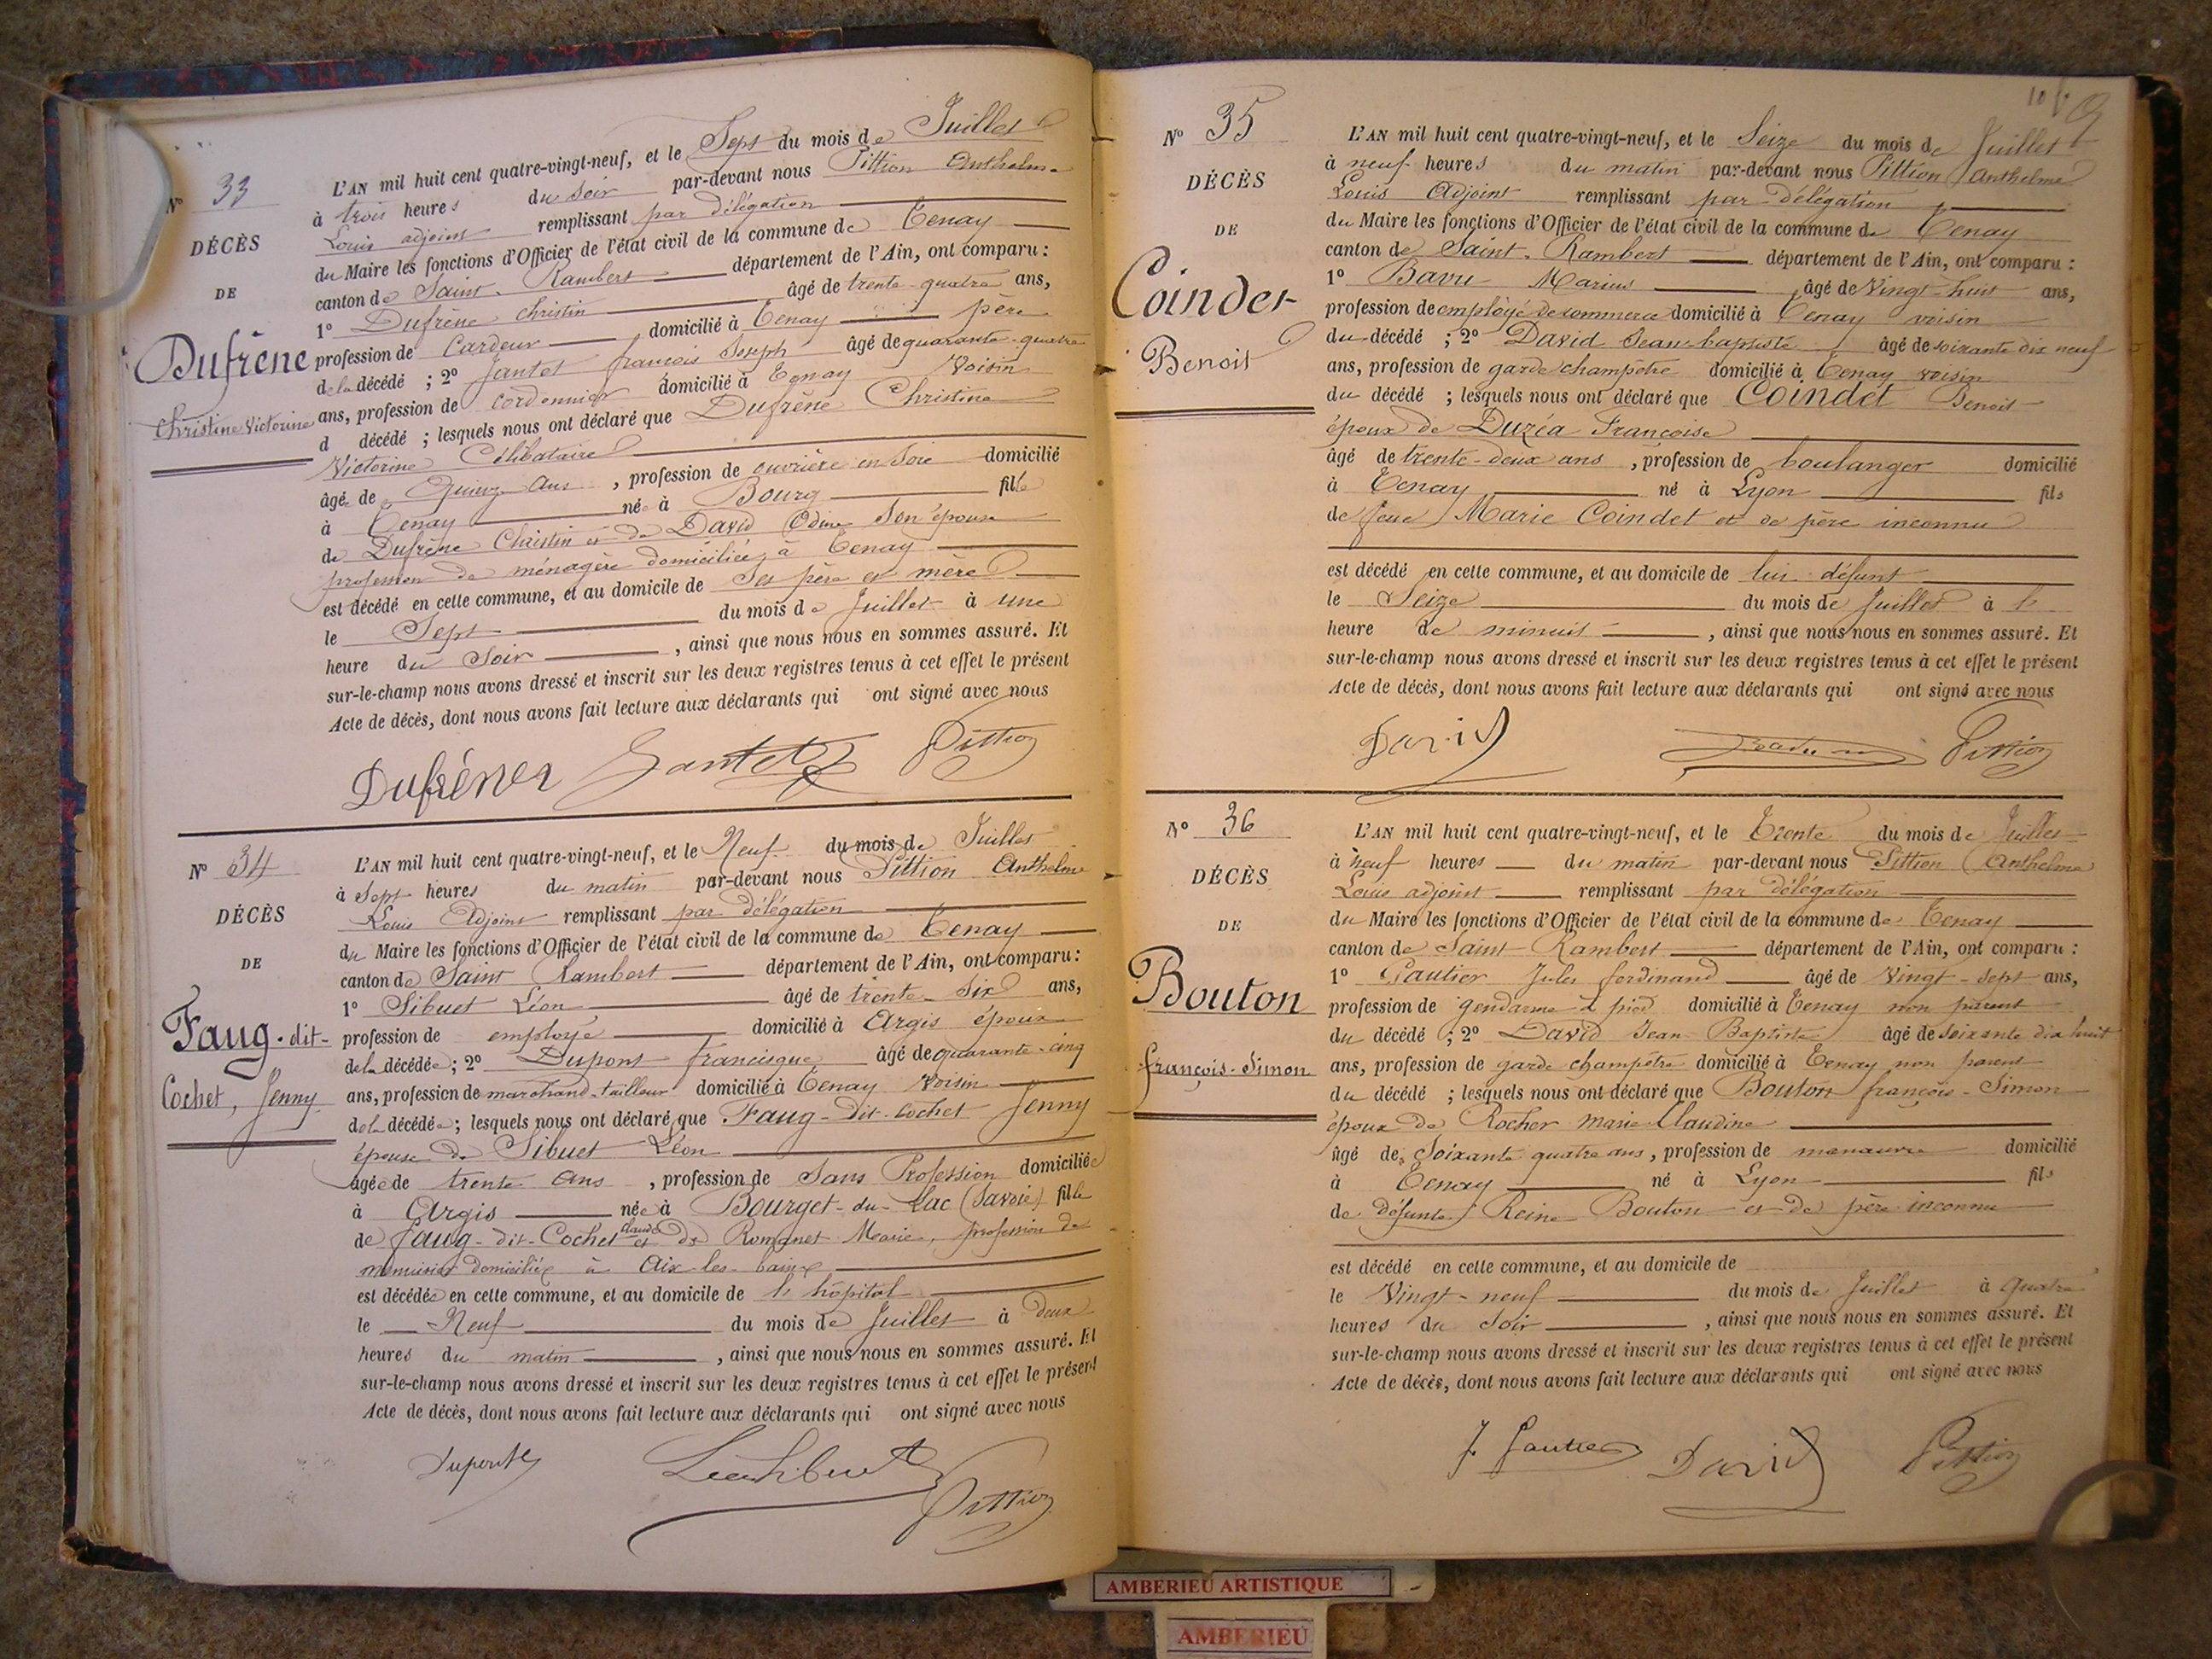 N° 33
DÉCÈS
DE
Dufrène
Christine Victorine
L'AN mil huit cent quatre-vingt-neuf, et le Sept du mois de Juillet
à trois heures du soir par-devant nous Pittion Anthelme
Louis adjoint remplissant par délégation
du Maire les fonctions d'Officier de l'état civil de la commune de Tenay
canton de Saint-Rambert département de l'Ain, ont comparu :
1° Dufrène Christin âgé de trente-quatre ans,
profession de Cardeur domicilié à Tenay père
de la décédé ; 2° Jantet françois Joseph âgé de quarante-quatre
ans, profession de cordonnier domicilié à Tenay Voisin
d décédé ; lesquels nous ont déclaré que Dufrène Christine
Victorine Célibataire
âgée de Quinze Ans , profession de ouvrière en Soie domicilié
à Tenay née à Bourg fille
de Dufrène Christin et de David Odine Son épouse
profession de ménagère domiciliée à Tenay
est décédé en cette commune, et au domicile de Ses père et mère
le Sept du mois de Juillet à une
heure du Soir , ainsi que nous nous en sommes assuré. Et
sur-le-champ nous avons dressé et inscrit sur les deux registres tenus à cet effet le présent
Acte de décès, dont nous avons fait lecture aux déclarants qui ont signé avec nous
Dufrène Jantet Pittion
N° 34
DÉCÈS
DE
Faug-dit-
Cochet, Jenny
L'AN mil huit cent quatre-vingt-neuf, et le Neuf du mois de Juillet
à Sept heures du matin par-devant nous Pittion Anthelme
Louis Adjoint remplissant par délégation
du Maire les fonctions d'Officier de l'état civil de la commune de Tenay
canton de Saint Rambert département de l'Ain, ont comparu :
1° Sibuet Léon âgé de trente-Six ans,
profession de employé domicilié à Argis époux
de la décédée ; 2° Dupont Francisque âgé de quarante-cinq
ans, profession de marchand-tailleur domicilié à Tenay Voisin
de la décédée ; lesquels nous ont déclaré que Faug-dit-Cochet Jenny
épouse de Sibuet Léon
âgée de trente Ans , profession de Sans Profession domiciliée
à Argis née à Bourget-du-Lac (Savoie) fille
de Faug-dit-Cochet Claude et de Romanet Marie, profession de
menuisier domiciliée à Aix-les-bains
est décédée en cette commune, et au domicile de l'hôpital
le Neuf du mois de Juillet à deux
heures du matin , ainsi que nous nous en sommes assuré. Et
sur-le-champ nous avons dressé et inscrit sur les deux registres tenus à cet effet le présent
Acte de décès, dont nous avons fait lecture aux déclarants qui ont signé avec nous
Dupont Léon Sibuet
Pittion
N° 35
DÉCÈS
DE
Coindet
Benoit
L'AN mil huit cent quatre-vingt-neuf, et le Seize du mois de Juillet
à neuf heures du matin par-devant nous Pittion Anthelme
Louis Adjoint remplissant par délégation
du Maire les fonctions d'Officier de l'état civil de la commune de Tenay
canton de Saint-Rambert département de l'Ain, ont comparu :
1° Marius âgé de Vingt-huit ans,
profession de employé de commerce domicilié à Tenay voisin
du décédé ; 2° David Jean-baptiste âgé de soixante dix neuf
ans, profession de garde champêtre domicilié à Tenay voisin
du décédé ; lesquels nous ont déclaré que Coindet Benoit
époux de Duzéa Françoise
âgé de trente-deux ans , profession de boulanger domicilié
à Tenay né à Lyon fils
de feue Marie Coindet et de père inconnu
est décédé en cette commune, et au domicile de lui défunt
le Seize du mois de Juillet à l'
heure de minuit , ainsi que nous nous en sommes assuré. Et
sur-le-champ nous avons dressé et inscrit sur les deux registres tenus à cet effet le présent
Acte de décès, dont nous avons fait lecture aux déclarants qui ont signé avec nous
David Pittion
N° 36
DÉCÈS
DE
Bouton
françois-Simon
L'AN mil huit cent quatre-vingt-neuf, et le Trente du mois de Juillet
à neuf heures du matin par-devant nous Pittion Anthelme
Louis adjoint remplissant par délégation
du Maire les fonctions d'Officier de l'état civil de la commune de Tenay
canton de Saint Rambert département de l'Ain, ont comparu :
1° Gautier Jules ferdinand âgé de Vingt-Sept ans,
profession de gendarme à pied domicilié à Tenay non parent
du décédé ; 2° David Jean Baptiste âgé de Soixante dix huit
ans, profession de garde champêtre domicilié à Tenay non parent
du décédé ; lesquels nous ont déclaré que Bouton françois-Simon
époux de Rocher marie Claudine
âgé de Soixante quatre ans, profession de manœuvre domicilié
à Tenay né à Lyon fils
de défunte Reine Bouton et de père inconnu
est décédé en cette commune, et au domicile de
le Vingt-neuf du mois de Juillet à quatre
heures du Soir , ainsi que nous nous en sommes assuré. Et
sur-le-champ nous avons dressé et inscrit sur les deux registres tenus à cet effet le présent
Acte de décès, dont nous avons fait lecture aux déclarants qui ont signé avec nous
J. Gautier David Pittion
AMBERIEU ARTISTIQUE
AMBERIEU